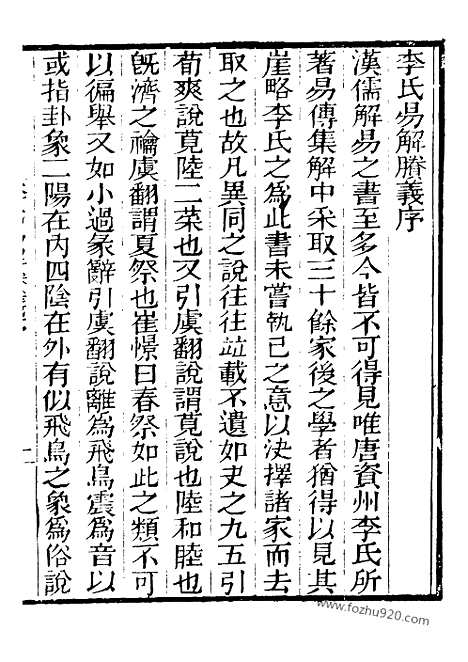 李氏易解賸義序
漢儒解易之書至多今皆不可得見唯唐資州李氏所
著易傳集解中采取三十餘家後之學者猶得以見其
崖略李氏之爲此書未嘗執己之意以決擇諸家而去
取之也故凡異同之說往往竝載不遺如夬之九五引
荀爽說莧陸二菜也又引虞翻說謂莧說也陸和睦也
旣濟之禴虞翻謂夏祭也崔憬曰春祭如此之類不可
以徧舉又如小過彖辭引虞翻說離爲飛鳥震爲音以
或指卦象二陽在內四陰在外有似飛鳥之象爲俗說
www.fozhu920.com